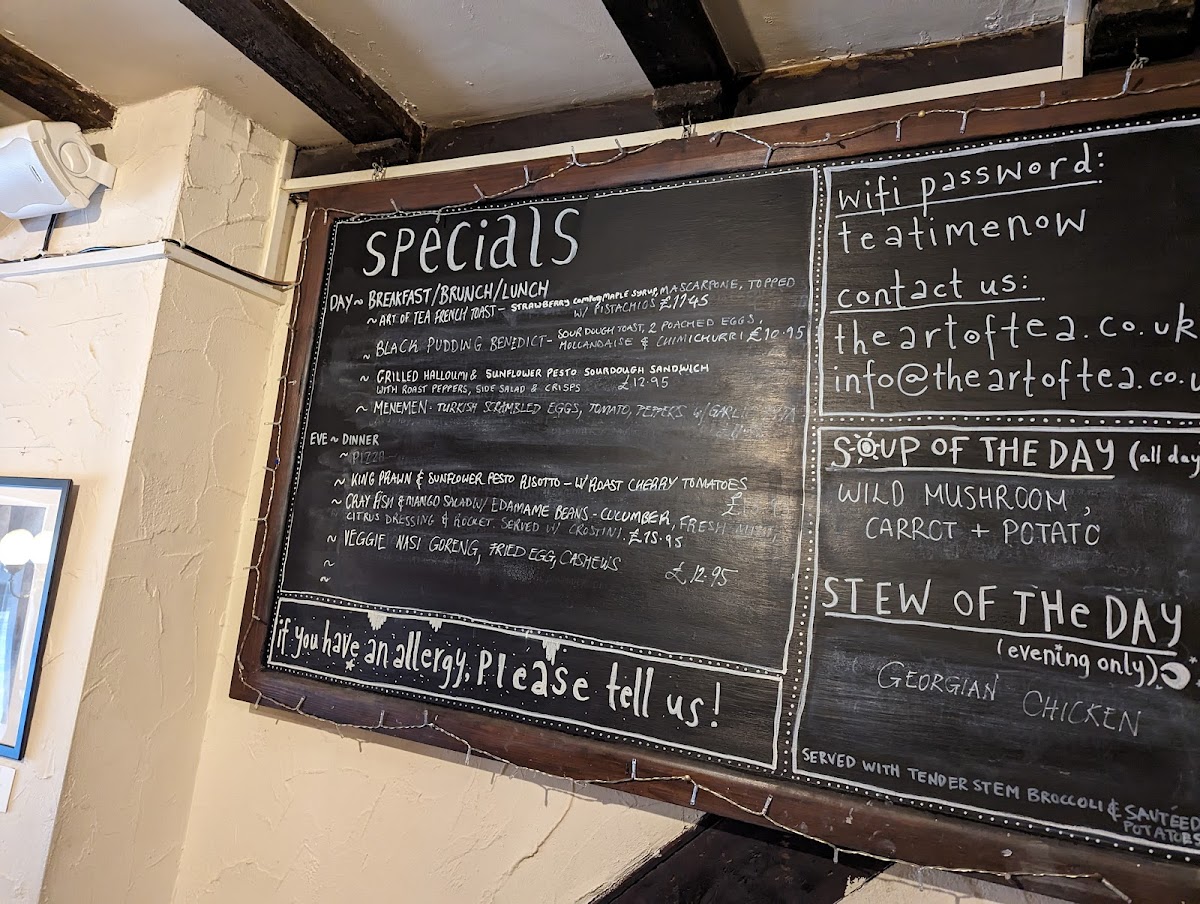 Specials
DAY ~ BREAKFAST/BRUNCH/LUNCH
~ ART OF TEA FRENCH TOAST - STRAWBERRY MAPLE SYRUP, MASCARPONE, TOPPED
W/ PISTACHIOS £11.45
~ BLACK PUDDING BENEDICT - SOURDOUGH TOAST, 2 POACHED EGGS,
HOLLANDAISE & CHIMICHURRI £10.95
~ GRILLED HALLOUMI & SUNFLOWER PESTO SOURDOUGH SANDWICH
WITH ROAST PEPPERS, SIDE SALAD & CRISPS £12.95
~ MENEMEN - TURKISH SCRAMBLED EGGS, TOMATO, PEPPERS W/ GARLIC
EVE ~ DINNER
~ PIZZA
~ KING PRAWN & SUNFLOWER PESTO RISOTTO - W/ ROAST CHERRY TOMATOES
£
~ CRAY FISH & MANGO SALAD W/ EDAMAME BEANS - CUCUMBER, FRESH MINT,
CITRUS DRESSING & ROCKET. SERVED W/ CROSTINI. £15.95
~ VEGGIE NASI GORENG, FRIED EGG, CASHEWS £12.95
~
~
if you have an allergy, Please tell us!
wifi password:
teatimenow
contact us:
theartoftea.co.uk
info@theartoftea.co.u
SOUP OF THE DAY (all day
WILD MUSHROOM,
CARROT + POTATO
STEW OF THE DAY
(evening only)
GEORGIAN CHICKEN
SERVED WITH TENDER STEM BROCCOLI & SAUTÉED
POTATOES